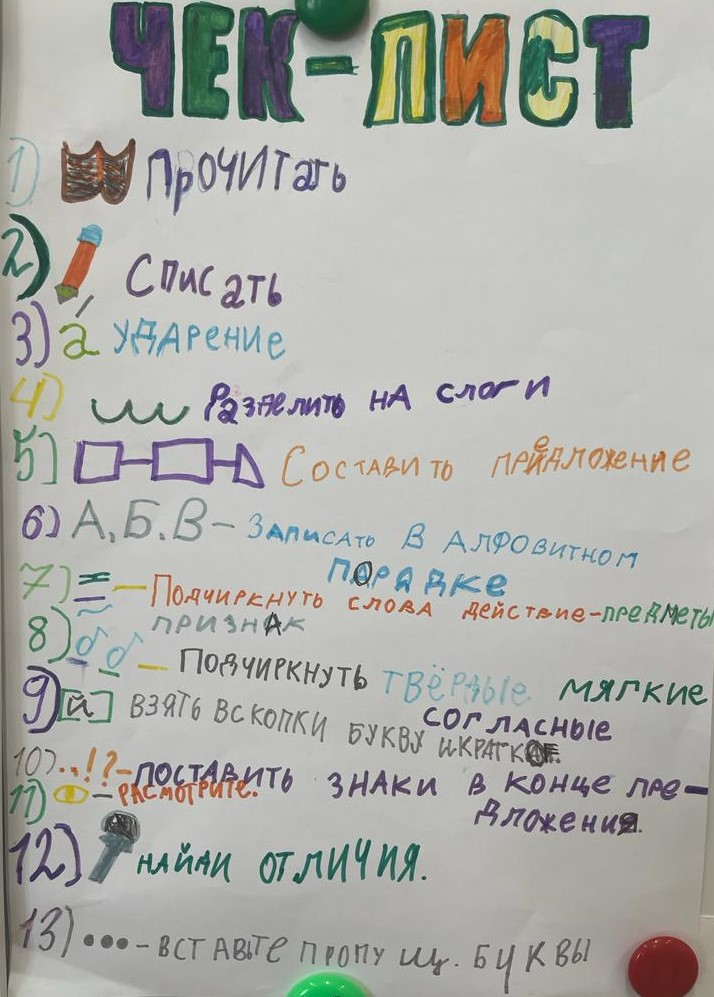 ЧЕК-ЛИСТ
1) Прочитать
2) Списать
3) á ударение
4) Разделить на слоги
5) Составить предложение
6) А, Б, В - Записать в алфовитном
порядке
7) - Подчиркнуть слова действие-предметы
признак
8) - Подчиркнуть твёрдые мягкие
согласные
9) [й] взять вскопки букву икраткое.
10) ..!? - поставить знаки в конце пре-
дложения.
11) - расмотрите.
12) найди отличия.
13) ... - вставьте пропущ. буквы